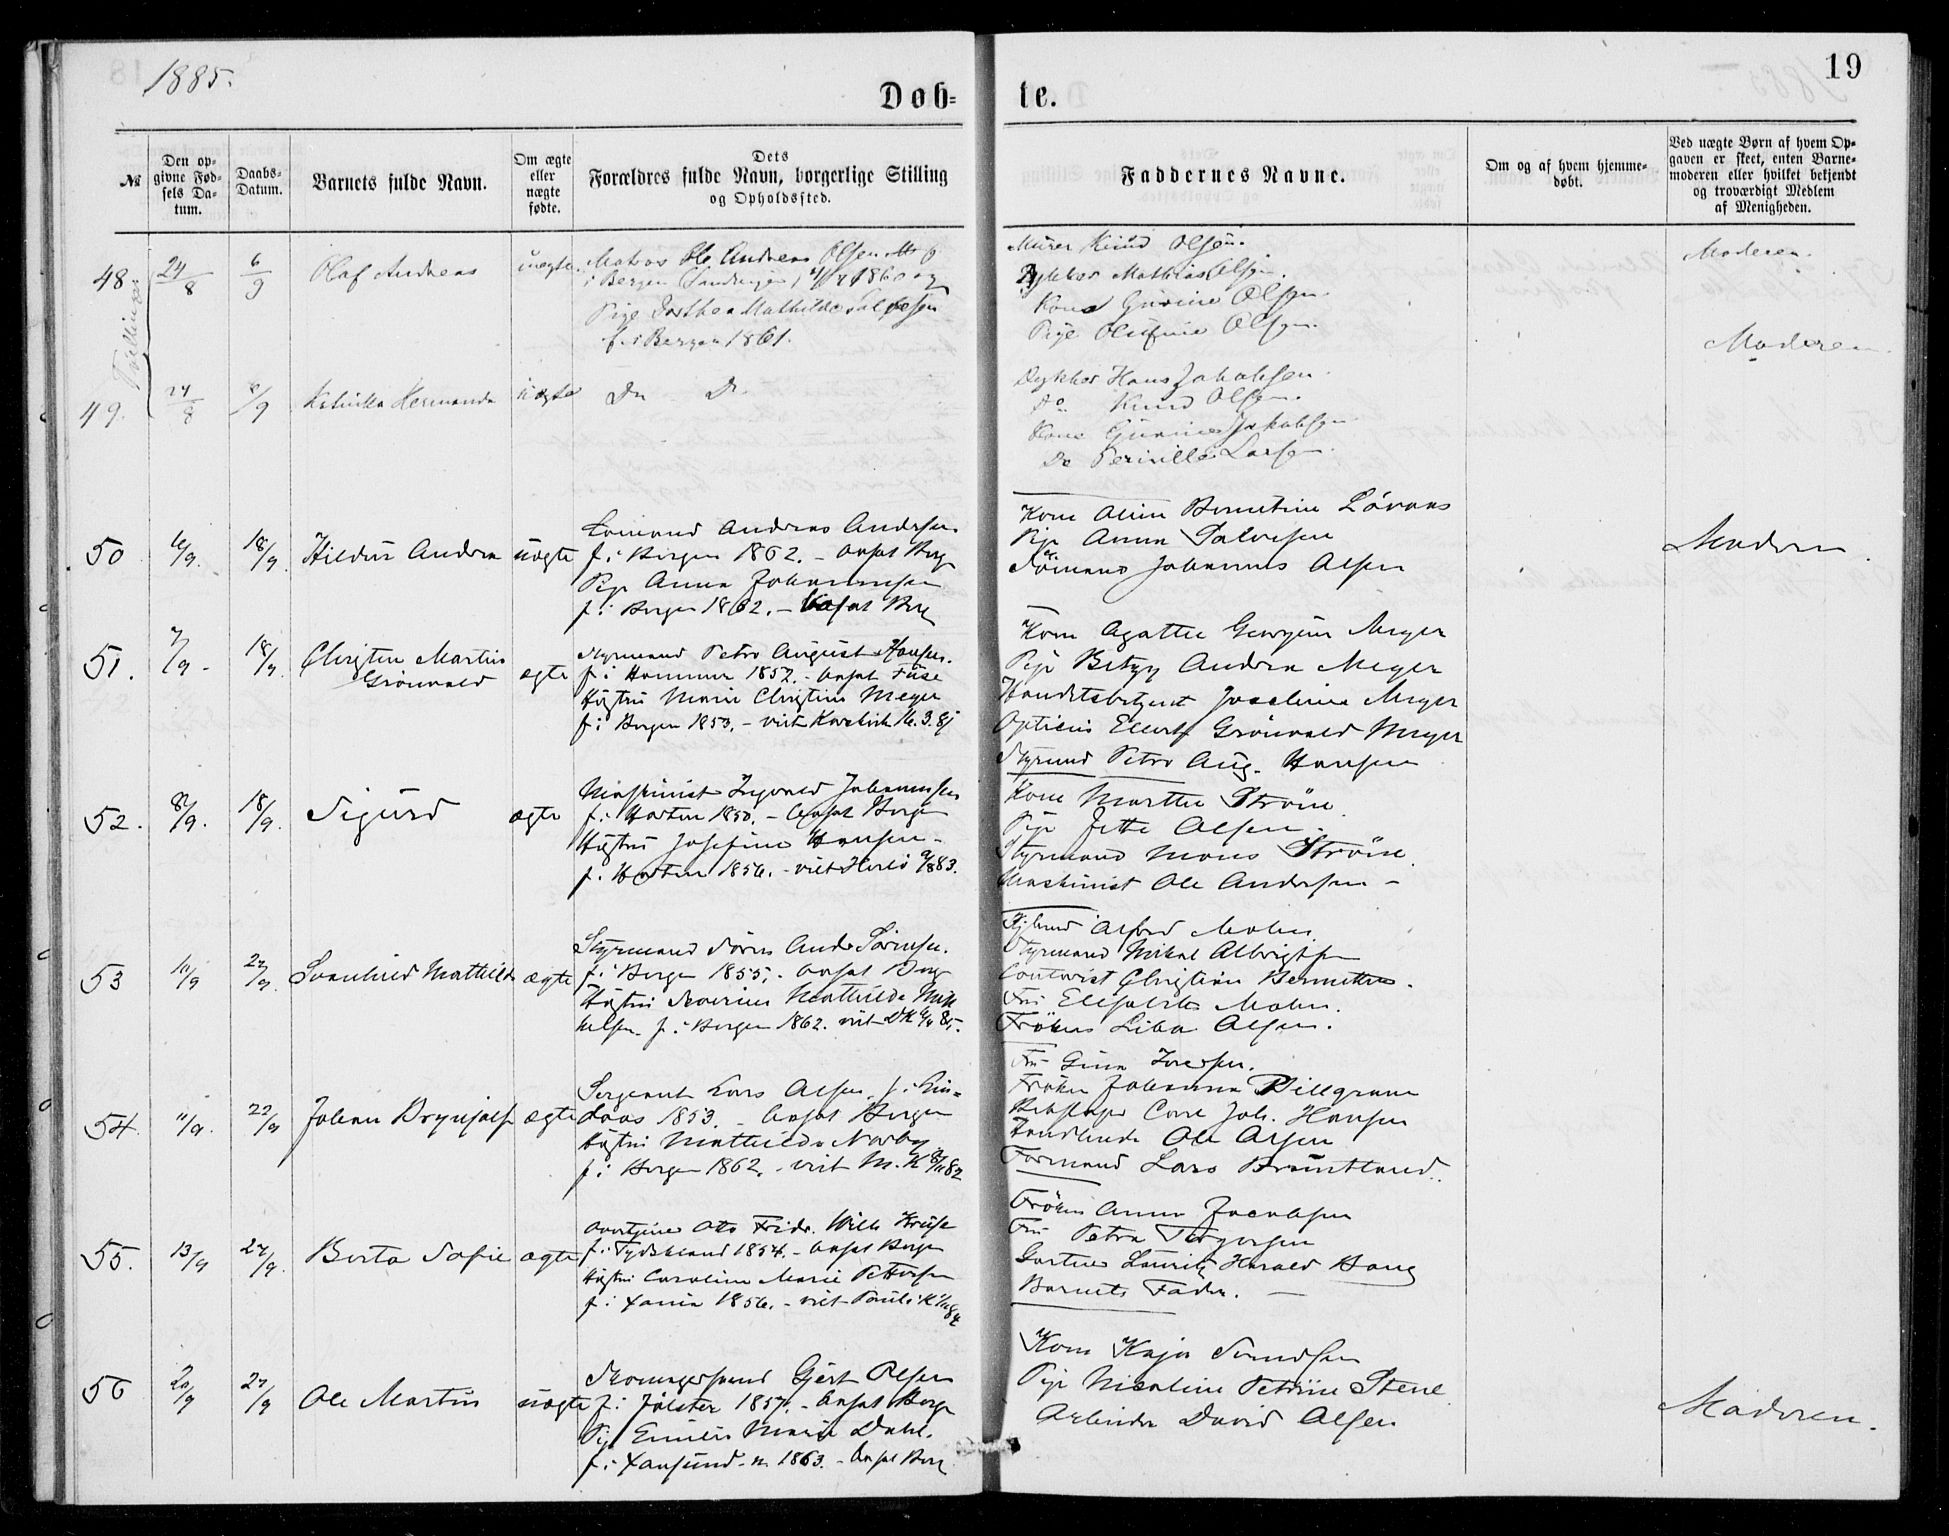 1885.
19
Døb-
te.
№
Den op-
givne Fød-
sels Da-
tum.
Daabs-
Datum.
Barnets fulde Navn.
Om ægte
eller
uægte
fødte.
Dets
Forældres fulde Navn, borgerlige Stilling
og Opholdssted.
Faddernes Navne.
Om og af hvem hjemme-
døbt.
Ved uægte Børn af hvem Op-
gaven er skeet, enten Barne-
moderen eller hvilket bekjendt
og troværdigt Medlem
af Menigheden.
Tvillinger
48
24/8
6/9
Olaf Andreas
uægte
Matros Ole Andreas Olsen
i Bergen 1860 og
Pige Dorthea Mathilde Salvesen
f. i Bergen 1861.
Murer Knud Olsen.
Dykker Mathias Olsen.
Kone Gurine Olsen.
Pige Olufine Olsen.
Moderen.
Moderen
49.
24/8
6/9
Katinka Hermanda
uægte
Do Do
Dykker Hans Jakobsen.
Do Knud Olsen.
Kone Gurine Jakobsen
Do Pernille Larsen.
50
6/9.
18/9.
Hildur Andrea
uægte
Sømand Andreas Andersen
f. i Bergen 1862. - bosat Berg
Pige Anna Johannesen
f. i Bergen 1862. - bosat Berg
Kone Oline Berntine Lövaas
Pige Anna Salvesen
Sømand Johannes Olsen
Moderen.
51.
7/9.
18/9.
Christen Martin
Grönvold
ægte
Styrmand Petro August Hansen.
f. i Hammer 1857. - bosat Fuse
Hustru Marie Christine Meyer
f. i Bergen 1853. - viet Korskirk
Kone Agathe Georgine Meyer
Pige Betzy Andrea Meyer
Handelsbetjent Joachim Meyer
Opticus Ellert Grönvold Meyer
Styrmd Petro Aug. Hansen
52.
8/9.
18/9.
Sigurd
ægte
Maskinist Ingvald Johannesen
f. i Horten 1850. - bosat Bergen
Hustru Josefine Hansen -
f. i Horten 1856. - viet
Kone Marthe Ström
Pige Jette Olsen.
Styrmand Mons Ström.
Maskinist Ole Andersen -
53
10/9
27/9.
Svanhild Mathilde
ægte
Styrmand Sören And. Sörensen.
f. i Bergen 1855. - bosat Berg
Hustru Severine Mathilde Mik-
kelsen f. i Bergen 1862. viet DK
Alfred Mohn
Styrmand Mikal Albrigtsen
Contorist Christian Berntsen.
Fru Elisabeth Mohn.
Fröken Liba Olsen.
54.
11/9.
27/9
Johan Brynjolf
ægte
Sergeant Lars Olsen. f. i Lin-
daas 1853. - bosat Bergen
Hustru Mathilde Norby
f. i Bergen 1862. - viet M.K. 82
Fru Gina Iversen.
Fröken Johanna Dillgram
Joh. Hansen
Handlende Ole Olsen
Formand Lars Bruntland.
55.
13/9
27/9.
Berta Sofie
ægte
Otto Fridr. Wilh Kruse
f. i Tydskland 1854. - bosat Bergen
Hustru Caroline Marie Pettersen
f. i Xania 1856. - viet
Fröken Anna Jacobsen
Fru Petra Torgersen
Gartner Lauritz Harald Haug
Barnets Fader. -
56
20/9
27/9
Ole Martin
uægte
Skomagersvend Gjert Olsen
f. i Jölster 1857. - bosat Bergen
Pige Emilie Marie Dahl.
f. i Xansund N. 1863. - bosat Berg
Kone Kaja Svendsen
Pige Nicoline Petrine Stene
Arbeider David Olsen
Moderen.